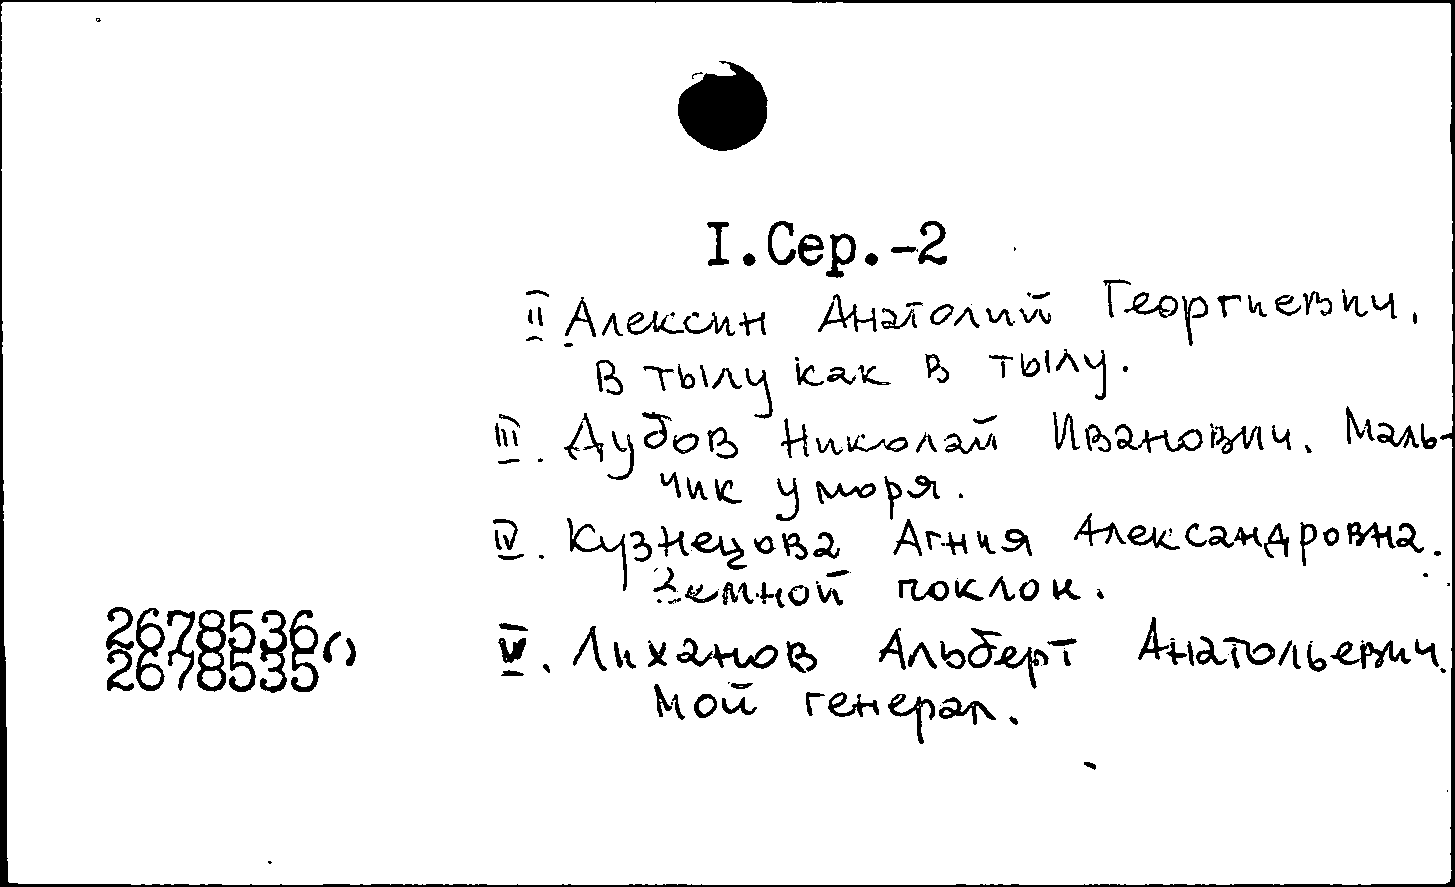 I.Сер.-2
II Алексин Анатолий Георгиевич.
В тылу как в тылу.
III. Дубов Николай Иванович. Маль-
чик у моря.
IV. Кузнецова Агния Александровна.
Земной поклон.
2678536
V. Лиханов Альберт Анатольевич.
2678535
Мой генерал.